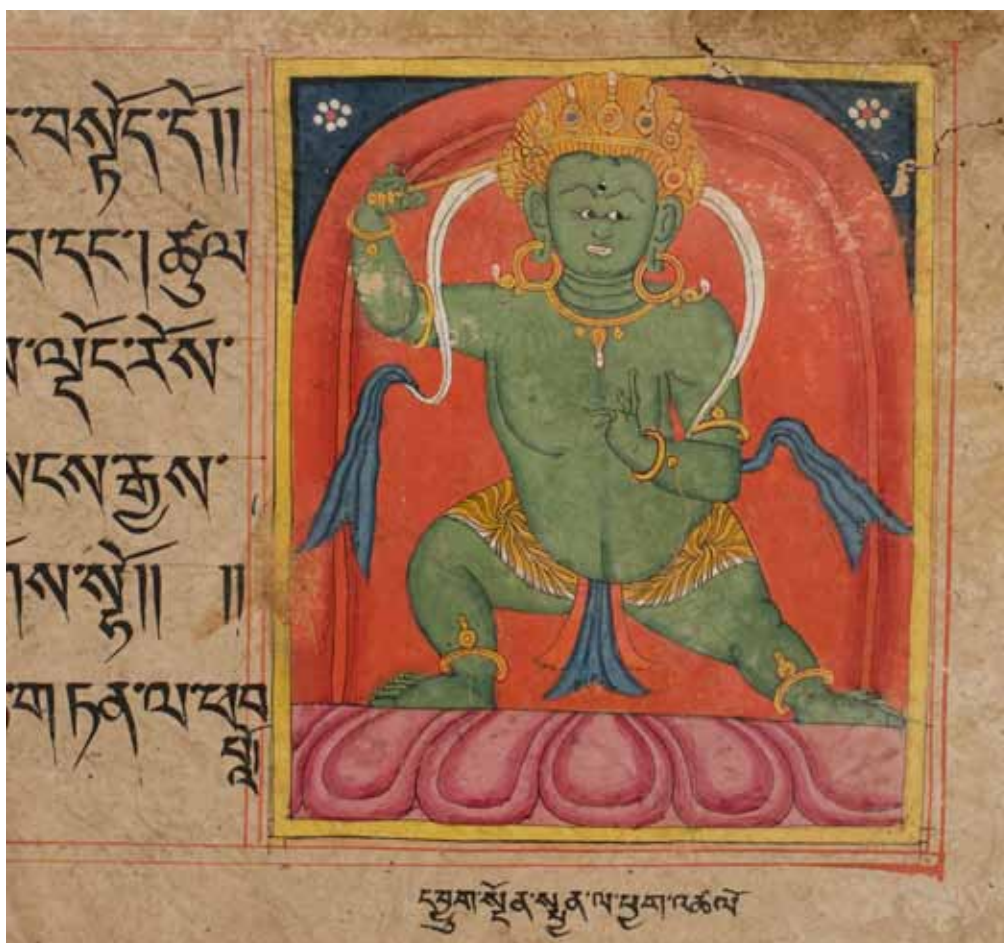 བསྟོད་དོ།།
པ་དང་། ཚུལ
ལྡོང་རོས་
སངས་རྒྱས་
སྟོ།། །།
གཏན་ལ་ཕབ
དབྱུག་སྔོན་སྤྱན་ལ་ཕྱག་འཚལོ